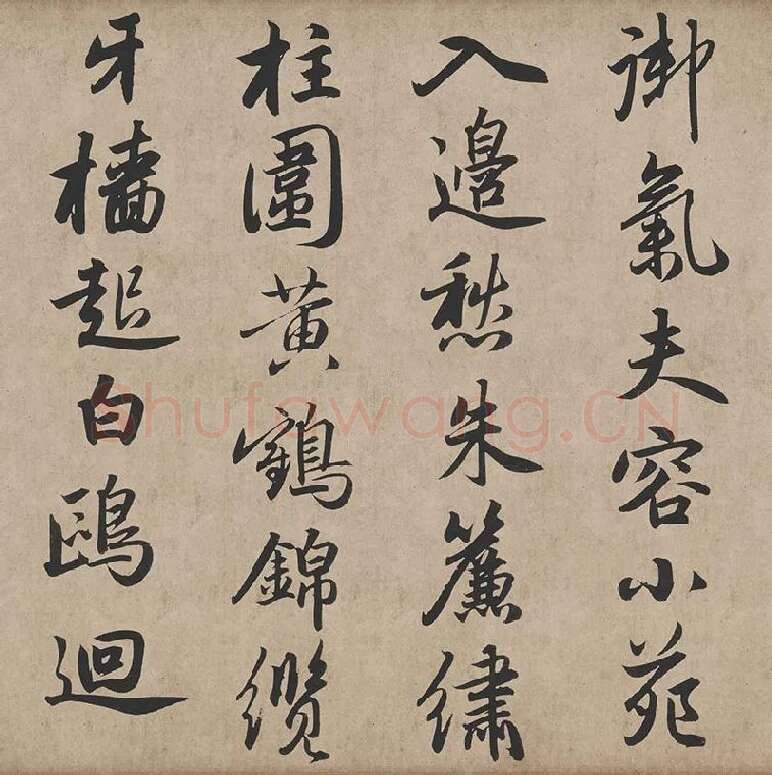 御氣夫容小苑
入邊愁朱簾繡
柱圍黃鶴錦纜
牙檣起白鷗迴
Shufawang.CN